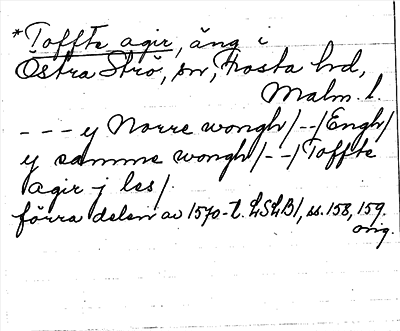 *Toffte agir, äng i
Östra Strö, sn, Frosta hd,
Malm. l.
- - - y Norre wongh/--/Engh/
y samme wongh/--/Toffte
agir j les/.
förra delen av 1570-t. LSLB/, ss. 158, 159.
orig.